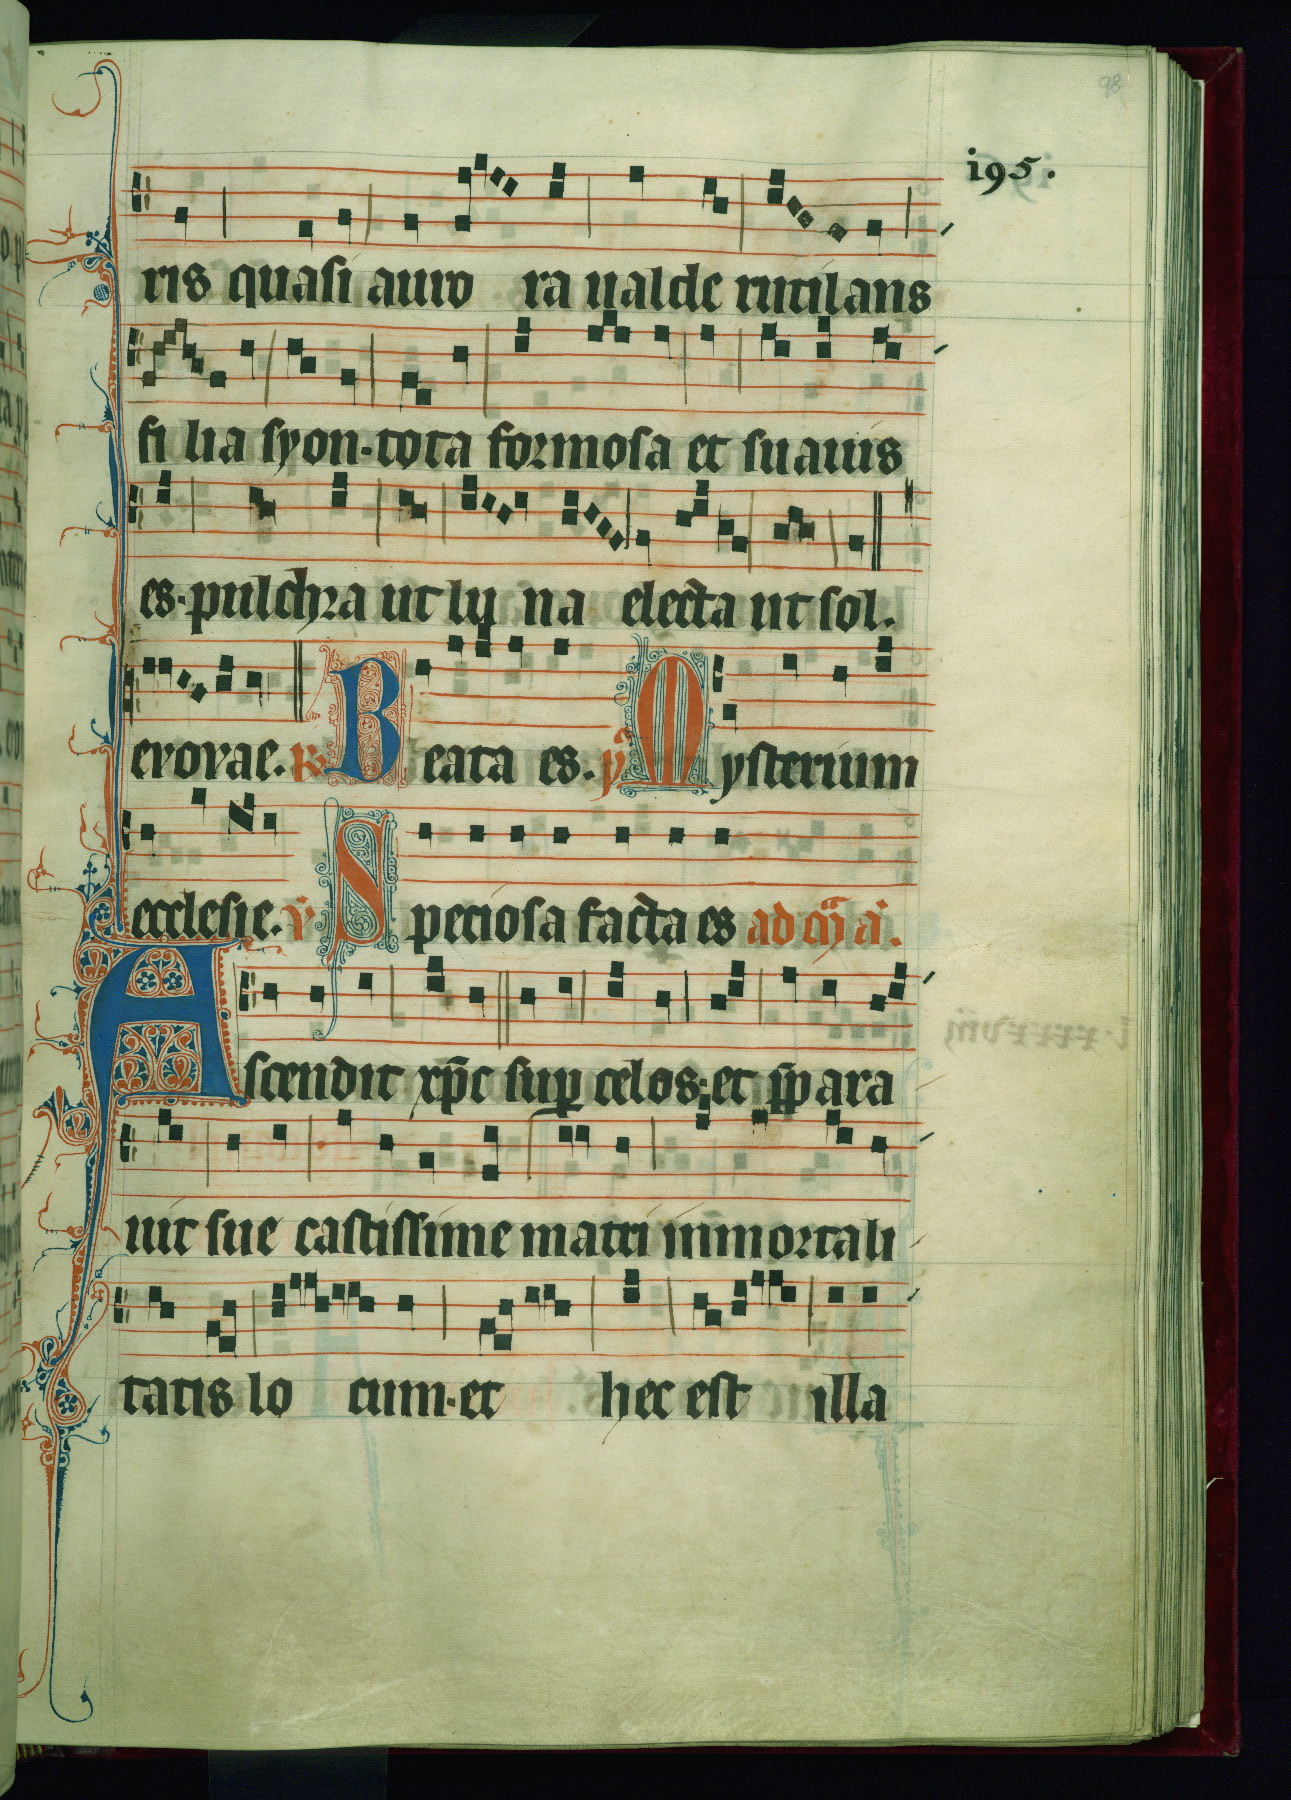 98
i95.
ris quasi auro ra ualde rutilans
fi lia syon·tota formosa et suauis
es·pulchra ut lu na electa ut sol.
evovae. R̃ Beata es. p̃ Mysterium
ecclesie. v̇ Speciosa facta es ad m̃ a.
Ascendit xp̄c sup celos·et p̄para
uit sue castissime matri inmortali
tatis lo cum·et hec est illa